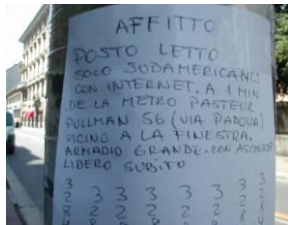 AFFITTO
POSTO LETTO
SOLO SUDAMERICANI
CON INTERNET. A 1 MIN
DE LA METRO PASTEUR
PULLMAN 56 (VIA PADOVA)
VICINO A LA FINESTRA.
ARMADIO GRANDE. CON
LIBERO SUBITO
3 3 3 3 3 3 3
2 2 2 2 2 2 2
8 8 8 8 8 8